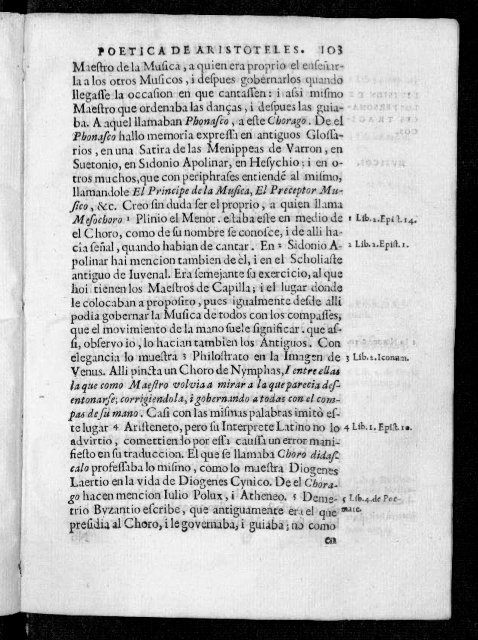 POETICA DE ARISTOTELES. 103
Maestro de la Musica, a quien era proprio el enseñar-
la a los otros Musicos, i despues gobernarlos quando
llegasse la occasion en que cantassen: i assi mismo
Maestro que ordenaba las danças, i despues las guia-
ba. A aquel llamaban Phonasco, a este Chorago. De el
Phonasco hallo memoria expressa en antiguos Glossa-
rios, en una Satira de las Menippeas de Varron, en
Suetonio, en Sidonio Apolinar, en Hesychio; i en o-
tros muchos, que con periphrases entiendē al mismo,
llamandole El Principe de la Musica, El Preceptor Mu-
sico, &c. Creo sin duda ser el proprio, a quien llama
Mesochoro 1 Plinio el Menor. estaba este en medio de
1 Lib. 2. Epist. 14.
el Choro, como de su nombre se conosce, i de alli ha-
cia señal, quando habian de cantar. En 2 Sidonio A-
2 Lib. 2. Epist. 1.
polinar hai mencion tambien de èl, i en el Scholiaste
antiguo de Iuvenal. Era semejante su exercicio, al que
hoi tienen los Maestros de Capilla; i el lugar donde
le colocaban a proposito, pues igualmente desde alli
podia gobernar la Musica de todos con los compasses,
que el movimiento de la mano suele significar. que as-
si, observo io, lo hacian tambien los Antiguos. Con
elegancia lo muestra 3 Philostrato en la Imagen de
3 Lib. 2. Iconum.
Venus. Alli pincta un Choro de Nymphas, I entre ellas
la que como Maestro volvia a mirar a la que parecia des-
entonarse, corrigiendola, i gobernando a todas con el com-
pas de su mano. Casi con las mismas palabras imitò es-
te lugar 4 Aristeneto, pero su Interprete Latino no lo
4 Lib. 1. Epist. 10.
advirtio, comettiendo por essa caussa un error mani-
fiesto en su traduccion. El que se llamaba Choro didas-
calo professaba lo mismo, como lo maestra Diogenes
Laertio en la vida de Diogenes Cynico. De el Chora-
go hacen mencion Iulio Polux, i Atheneo. 5 Deme-
5 Lib. 4. de Poe-
trio Byzantio escribe, que antiguamente era el que
mate.
presidia al Choro, i le governaba, i guiaba; no como
en